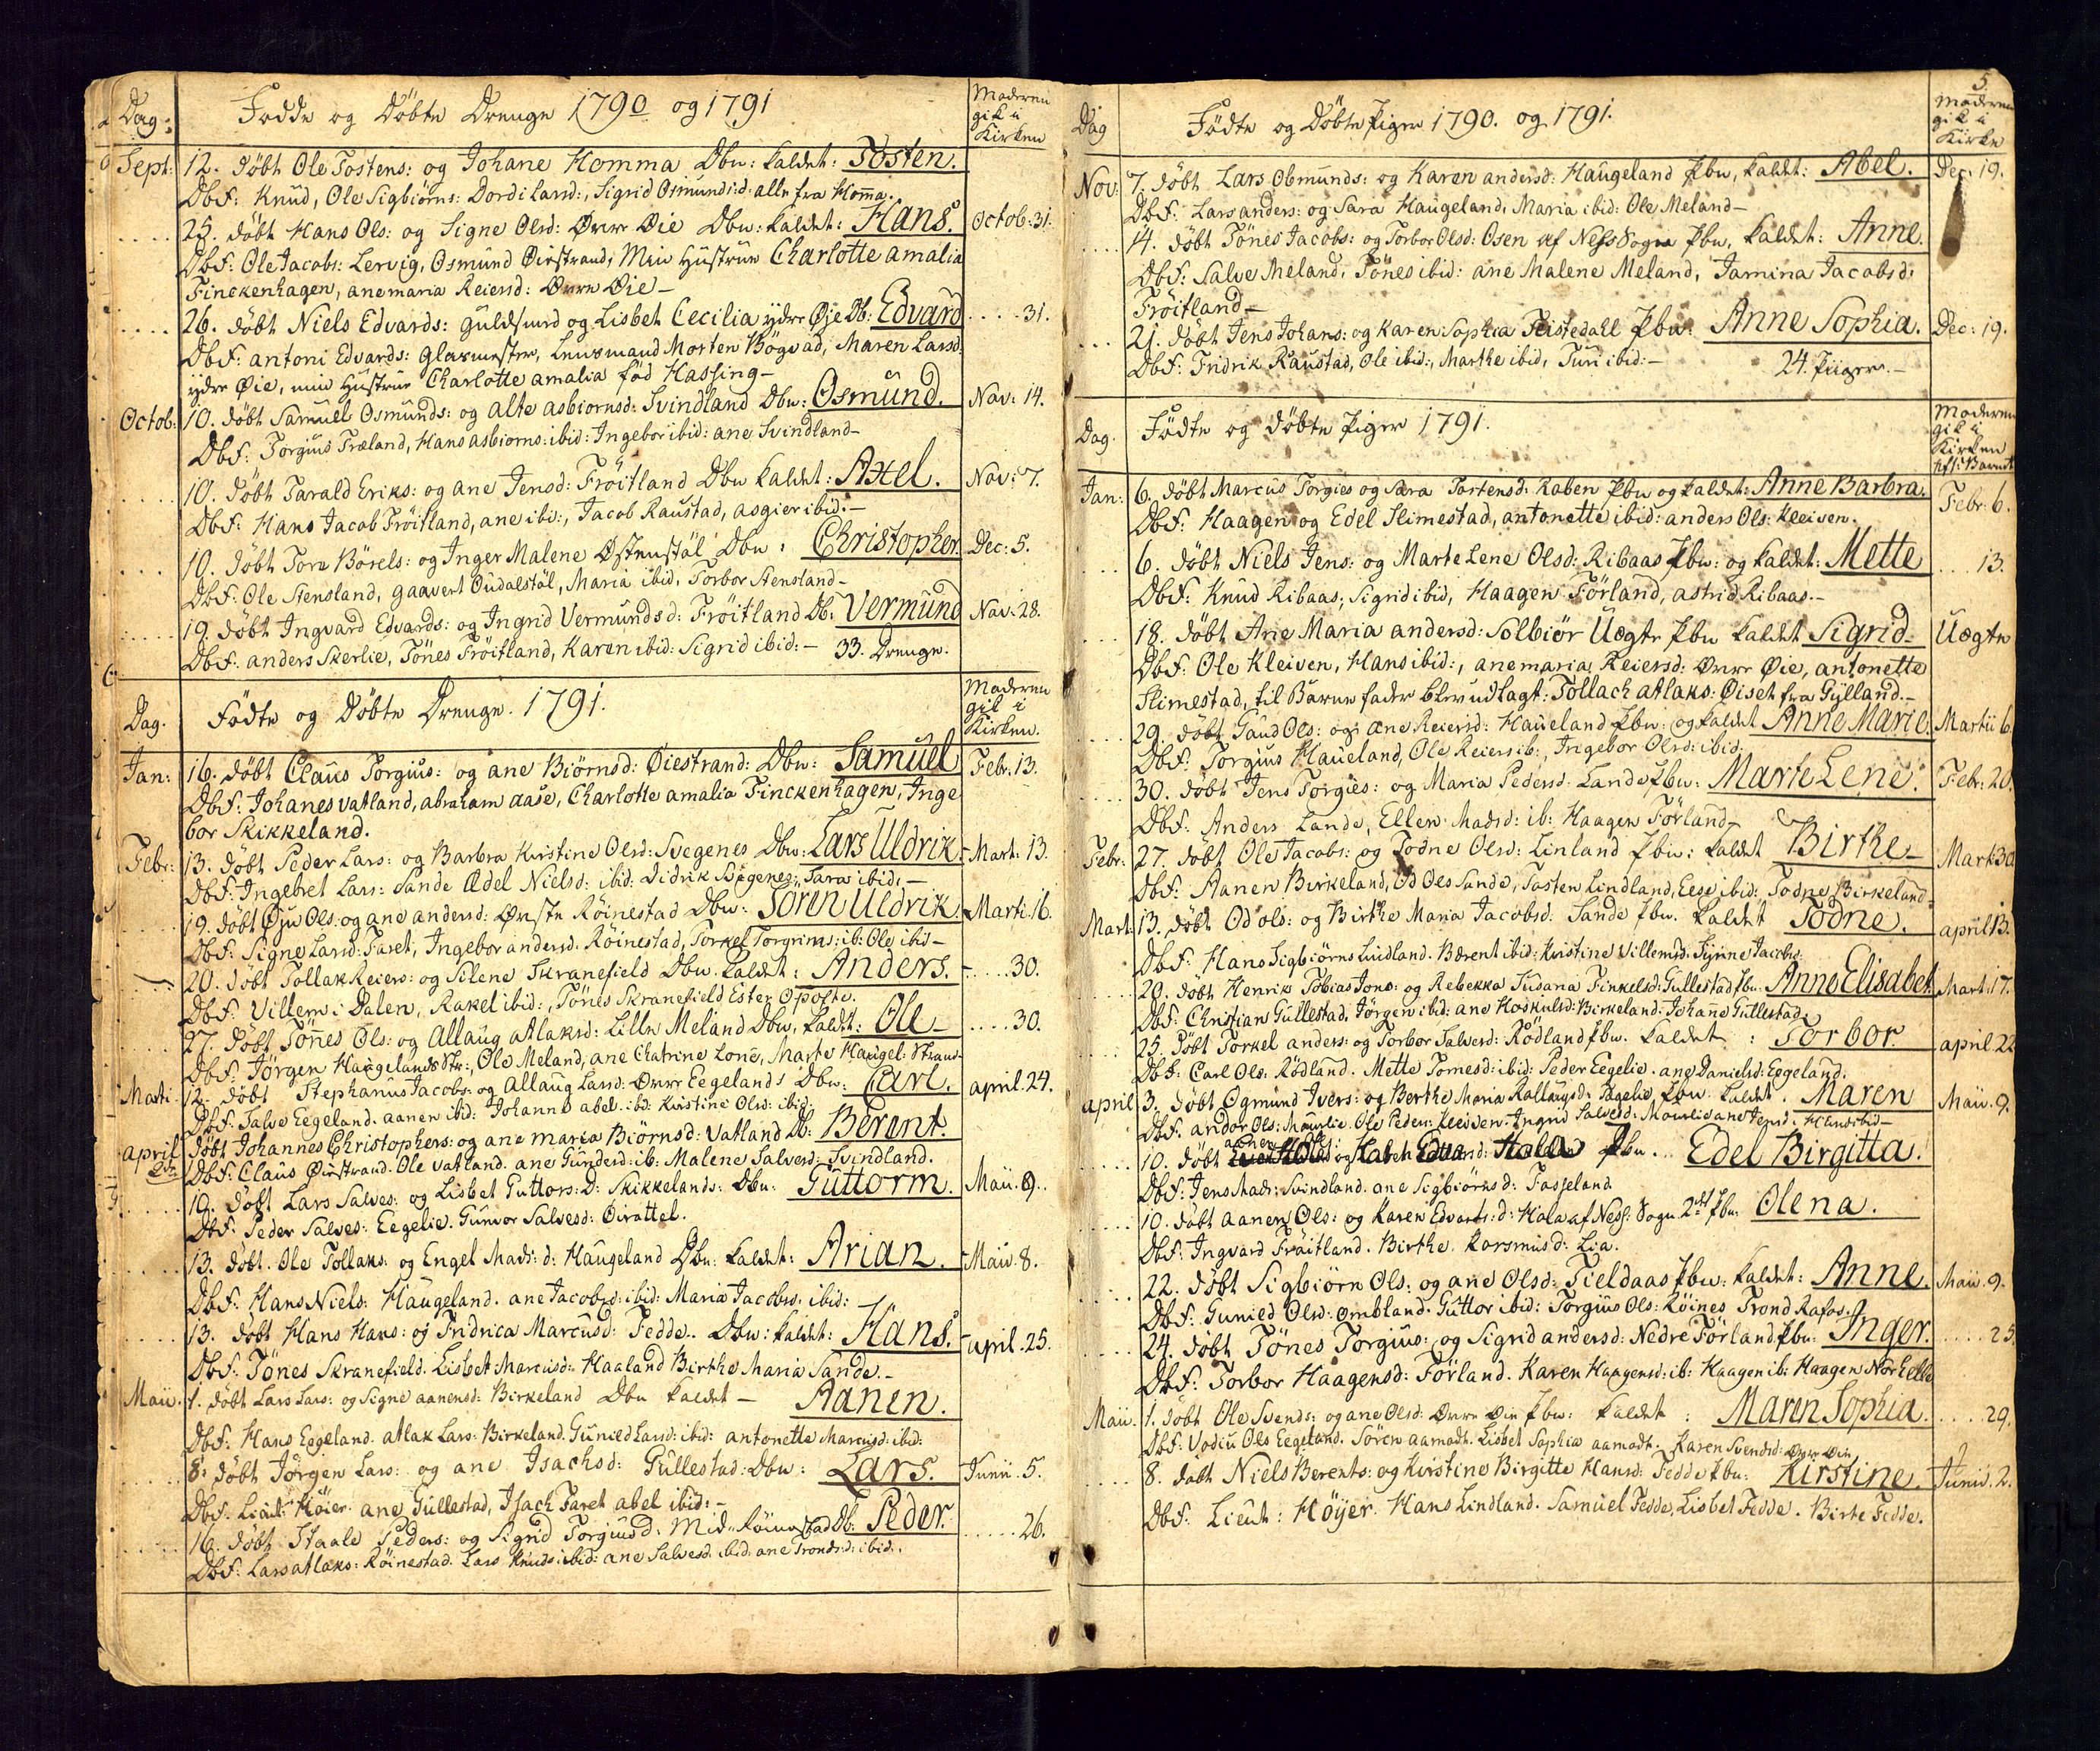 Dag:
Fødde og Døbte Drenge 1790 og 1791
Moderen
gik i
Kirken
Sept: 12. døbt Ole Tostens: og Johane Homma Dbn: kaldet: Tosten.
DbF: Knud, Ole Sigbiörns: Dordi Larsd:, Sigrid Osmunds:d: alle fra Homma.
25. døbt Hans Ols: og Signe Olsd: Øvre Øie Dbn: kaldet: Hans. Octob: 31.
DbF: Ole Jacobs: Lervig, Osmund Øiestrand, Min Hustrue Charlotte amalia
Finckenhagen, ane maria Reiersd: Øvre Øie –
26. døbt Niels Edvards: Guldsmed og Lisbet Cecilia ydre Øie Db: Edvard ..... 31.
DbF: antoni Edvards: Glarmester, Lensmand Morten Bögvad, Maren Larsd:
ydre Øie, min Hustrue Charlotte amalia föd Hassing –
Octob: 10. döbt Samuel Osmunds: og alte asbiornsd: Svindland Dbn: Osmund. Nov: 14.
DbF: Torgius Træland, Hans asbiorns: ibid: Ingebor ibid: ane Svindland –
10. døbt Tarald Eriks: og ane Jensd: Fröitland Dbn kaldet: Axel. Nov: 7.
DbF: Hans Jacob Fröitland, ane ibd:, Jacob Raustad, asgier ibid: –
10. døbt Tore Börels: og Inger Malene Østenstöl Dbn: Christopher. Dec: 5.
DbF: Ole Stensland, gaavert Oudalstöl, Maria ibid, Torbor Stensland –
19. døbt Ingvard Edvards: og Ingrid Vermundsd: Fröitland Db: Vermund Nov: 28.
DbF: anders Skerlie, Tönes Fröitland, Karen ibid: Sigrid ibid: – 33. Drenge.
Dag.
Födte og Döbte Drenge. 1791.
Moderen
gik i
Kirken.
Jan: 16. døbt Claus Torgius: og ane Biörnsd: Øiestrand: Dbn: Samuel Febr: 13.
DbF: Johanes vatland, abraham aase, Charlotte amalia Finckenhagen, Inge
bor Skikkeland.
Febr: 13. døbt Peder Lars: og Barbra Kirstine Olsd: Svegenes Dbn: Lars Uldrik. Mart: 13.
DbF: Ingebret Lars: Sande Ædel Nielsd: ibid: Didrik Svegenes, Tara ibid: –
19. døbt Øju Ols: og ane andersd: Øvste Röinestad Dbn: Sören Uldrik Marti: 16.
DbF: Signe Larsd: Faret, Ingebor andersd: Röinestad, Torkel Torgrims: ib: Ole ibid –
20. døbt Tollak Reiers: og Silene Skranefield Dbn. kaldet: Anders. .... 30.
DbF: Villem i Dalen, Rakel ibid:, Tönes Skranefield Ester Opofte.
27. døbt Tönnes Ols: og Allaug atlaksd: Lille Meland Dbn, kaldet: Ole – .... 30.
DbF: Jörgen Haugelands Str:, Ole Meland, ane Chatrine Lone, Marte Haugel: Strand –
Marti: 12. døbt Stephanus Jacobs: og Allaug Larsd: Øvre Eegeland: Dbn: Carl. april. 24.
DbF: Salve Eegeland. aanen ibid: Johanne abel. ibd: Kirstine Olsd: ibid:
april døbt Johannes Christophers: og ane maria Biörnsd: Vatland Db: Berent.
DbF: Claus Øiestrand. Ole vatland. ane Gundersd: ib: Malene Salvesd: Svindland.
10. døbt Lars Salves: og Lisbet Guttors: D: Skikkeland: Dbn: Guttorm. Maii. 9.
DbF: Peder Salves: Eegelie. Gunvor Salvesd: Öirattel.
13. døbt. Ole Tollaks: og Engel Mads:d: Haugeland Dbn: kaldet: Arian. Maii. 8.
DbF: Hans Niels: Haugeland. ane Jacobsd: ibid: Maria Jacobsd: ibid:
13. døbt Hans Hans: og Indrica Marcusd: Fedde.. Dbn: kaldet: Hans. april. 25.
DbF: Tönes Skranefield. Lisbet Marcusd: Haaland Birthe Maria Sande. –
Maii. 1. døbt Lars Lars: og Signe aanensd: Birkeland Dbn kaldet – Aanen.
DbF: Hans Eegeland. atlak Lars: Birkeland. Gunied Larsd: ibid: antonette Marcusd: ibid:
8. døbt Jörgen Lars: og ane Isachsd: Gullestad: Dbn: Lars. Junii. 5.
DbF. Lieut: Höier. ane Gullestad, Isach Faret abel ibid: –
16. døbt Staale Peders: og Sigrid Torgiusd: Mid-Röinestad Db: Peder. ..... 26.
DbF: Lars atlaks: Röinestad. Lars Knuds: ibid: ane Salvesd: ibid: ane Tronds:d: ibid.
5.
Dag
Födte og Döbte Piger 1790. og 1791.
Moderen
gik i
Kirke
Nov: 7. døbt Lars Obmunds: og Karen andersd: Haugeland Pbn, kaldet: Abel. Dec: 19.
DbF: Lars anders: og Sara Haugeland, Maria ibid: Ole Meland –
14. døbt Tönes Jacobs: og Torbor Olsd: Osen af Ness Sogn Pbn, kaldet: Anne.
DbF: Salve Meland, Tönes ibid: ane Malene Meland, Jamina Jacobsd:
Fröitland –
21. døbt Jens Johans: og Karen Sophia Tistedall Pbn: Anne Sophia. Dec: 19.
DbF: Indrik Raustad, Ole ibid:, Marthe ibid, Turi ibid: – 24. Piiger. –
Dag.
Födte og döbte Piger 1791.
Moderen
gik i
Kirken
Jan: 6. døbt Marcus Torgies og Sara Tortensd: Raben Pbn og kaldet: Anne Barbra. Febr: 6.
DbF: Haagen og Edel Slimestad, antonette ibid: anders Ols: Kleiven.
6. døbt Niels Jens: og Marte Lene Olsd: Ribaas Pbn: og kaldet: Mette .... 13.
DbF: Knud Ribaas, Sigrid ibid, Haagen Förland, astrid Ribaas. –
18. døbt Ane Maria andersd: Solbiör Uægte Pbn kaldet Sigrid – Uægte
DbF: Ole Kleiven, Hans ibid:, ane maria Reiersd: Øvre Øie, antonette
Slimestad, til Barne fader blev udlagt: Tollach atlaks: Øiset fra Gylland. –
29. døbt Gaud Ols: og ane Reiersd: Haueland Pbn: og kaldet Anne Marie. Martii 6.
DbF: Torgius Haueland, Ole Reiers ib:, Ingebor Olsd: ibid:
30. døbt Jens Torgies: og Maria Pedersd: Lande Pbn: Marte Lene. Febr: 20.
DbF: Anders Lande, Ellen Madsd: ib: Haagen Förland –
Febr: 27. døbt Ole Jacobs: og Todne Olsd: Linland Pbn: kaldet Birthe – Mart: 30
DbF: Aanen Birkeland, Od Ols Sande, Tosten Lindland, Eese ibid: Todne Birkeland –
Mart: 13. døbt Od ols: og Birthe Maria Jacobsd: Sande Pbn. kaldet Todne. april 13.
DbF: Hans Sigbiörns Lindland. Bærent ibid: Kirstine Villemsd: Synne Jacobs:
20. døbt Henrik Tobias Jons: og Rebekka Susana Finkelsd: Gullestad Pbn: Anne Elisabet. Mart: 17.
DbF: Christian Gullestad. Jörgen ibid: ane Hoskulsd: Birkeland: Johanne Gullestad.
25. døbt Torkel anders: og Torbor Salvesd: Rödland Pbn. kaldet : Torbor. april. 22
DbF: Carl Ols: Rödland. Mette Tomesd: ibid: Peder Eegelie. ane Danielsd: Eegeland.
april 3. døbt Ogmund Ivers: og Berthe Maria Kallaugsd: Eegelie Pbn. kaldet. Maren Maii. 9.
DbF: andor Ols: Mourlie Ole Peders: Kleiven. Ingrid Salvesd: Mourlie ane Jensd:
10. døbt Pbn... Edel Birgitta.
DbF: Jens Mads: Svindland. ane Sigbiörnsd: Fasseland
10. døbt aanen Ols: og Karen Edvards:d: Hola af Ness: Sogn 2det Pbn: Olena.
DbF: Ingvard Fröitland. Birthe Rorsmusd: Lia.
22. døbt Sigbiörn Ols: og ane Olsd: Tieldaas Pbn: kaldet: Anne. Maii. 9.
DbF: Gunied Olsd: Ombland. Guttor ibid: Torgius Ols: Röines Trond Rafos.
24. døbt Tönes Torgius: og Sigrid andersd: Nedre Förland. Pbn: Inger. .... 25
DbF: Torbor Haagensd: Förland. Karen Haagensd: ib: Haagen ib: Haagen Nörhelle
Maii. 1. døbt Ole Svends: og ane Olsd: Øvre Øie Pbn: kaldet : Maren Sophia. .... 29.
DbF: Vodiu Ols Eegeland. Sören aamodt. Lisbet Sophia aamodt. Karen Svendsd: Øvre Øie
8. døbt Niels Berents: og Kirstine Birgitte Hansd: Fedde Pbn: Kirstine. Junii. 2.
DbF: Lieut: Höyer. Hans Lindland. Samuel Fedde, Lisbet Fedde. Birte Fedde.